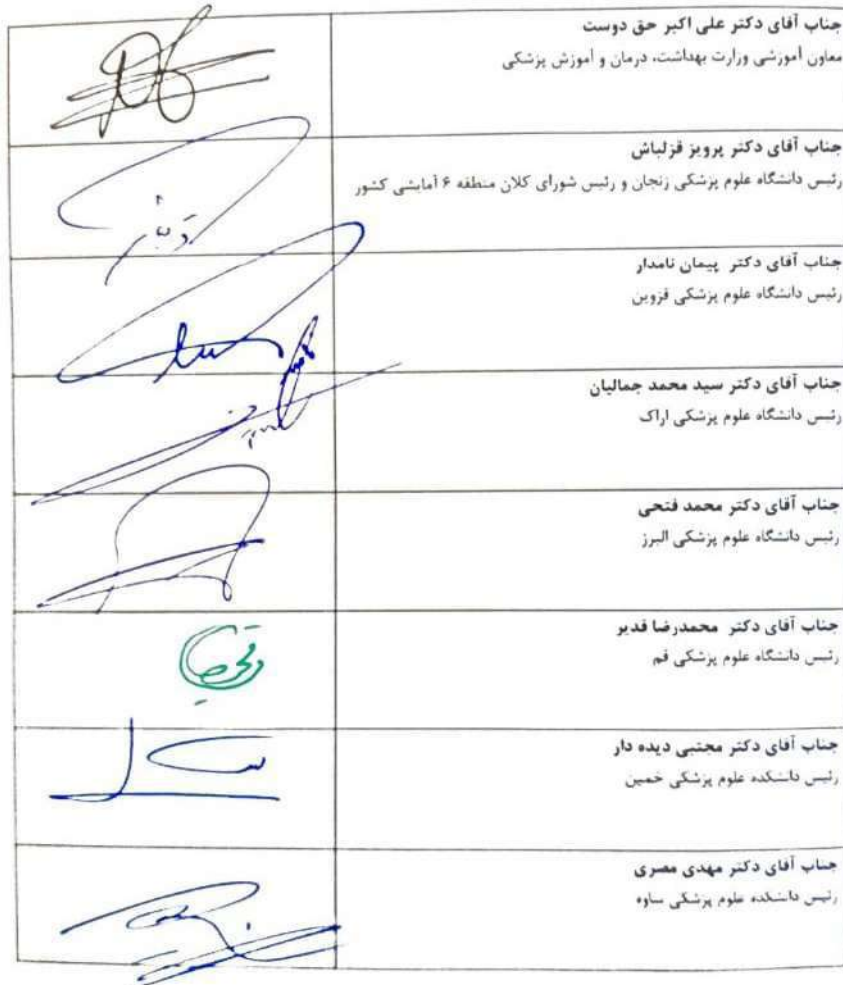 جناب آقای دکتر علی اکبر حق دوست
معاون آموزشی وزارت بهداشت، درمان و آموزش پزشکی
جناب آقای دکتر پرویز قزلباش
رئیس دانشگاه علوم پزشکی زنجان و رئیس شورای کلان منطقه ۶ آمایشی کشور
جناب آقای دکتر پیمان نامدار
رئیس دانشگاه علوم پزشکی قزوین
جناب آقای دکتر سید محمد جمالیان
رئیس دانشگاه علوم پزشکی اراک
جناب آقای دکتر محمد فتحی
رئیس دانشگاه علوم پزشکی البرز
جناب آقای دکتر محمدرضا قدیر
رئیس دانشگاه علوم پزشکی قم
جناب آقای دکتر مجتبی دیده دار
رئیس دانشکده علوم پزشکی خمین
جناب آقای دکتر مهدی مصری
رئیس دانشکده علوم پزشکی ساوه